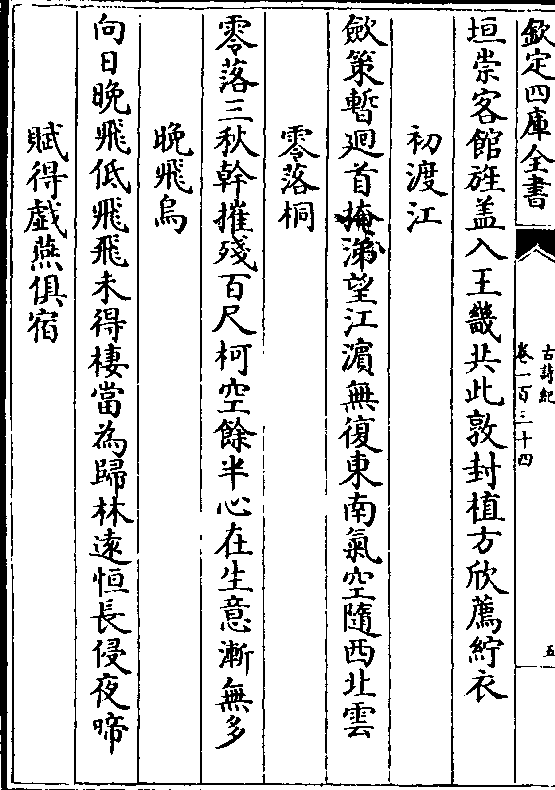 欽定四庫全書
古詩紀
卷一百三十四
五
垣崇客館旌盖入王畿共此敦封植方欣薦紵衣
初渡江
歛策暫廻首掩涕望江濵無復東南氣空隨西北雲
零落桐
零落三秋幹摧殘百尺柯空餘半心在生意漸無多
晚飛烏
向日晚飛低飛飛未得棲當為歸林逺恒長侵夜啼
賦得戱燕俱宿